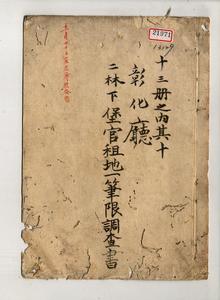 十三册之內其十
彰化廳
二林下堡官租地一筆限調查書
21971